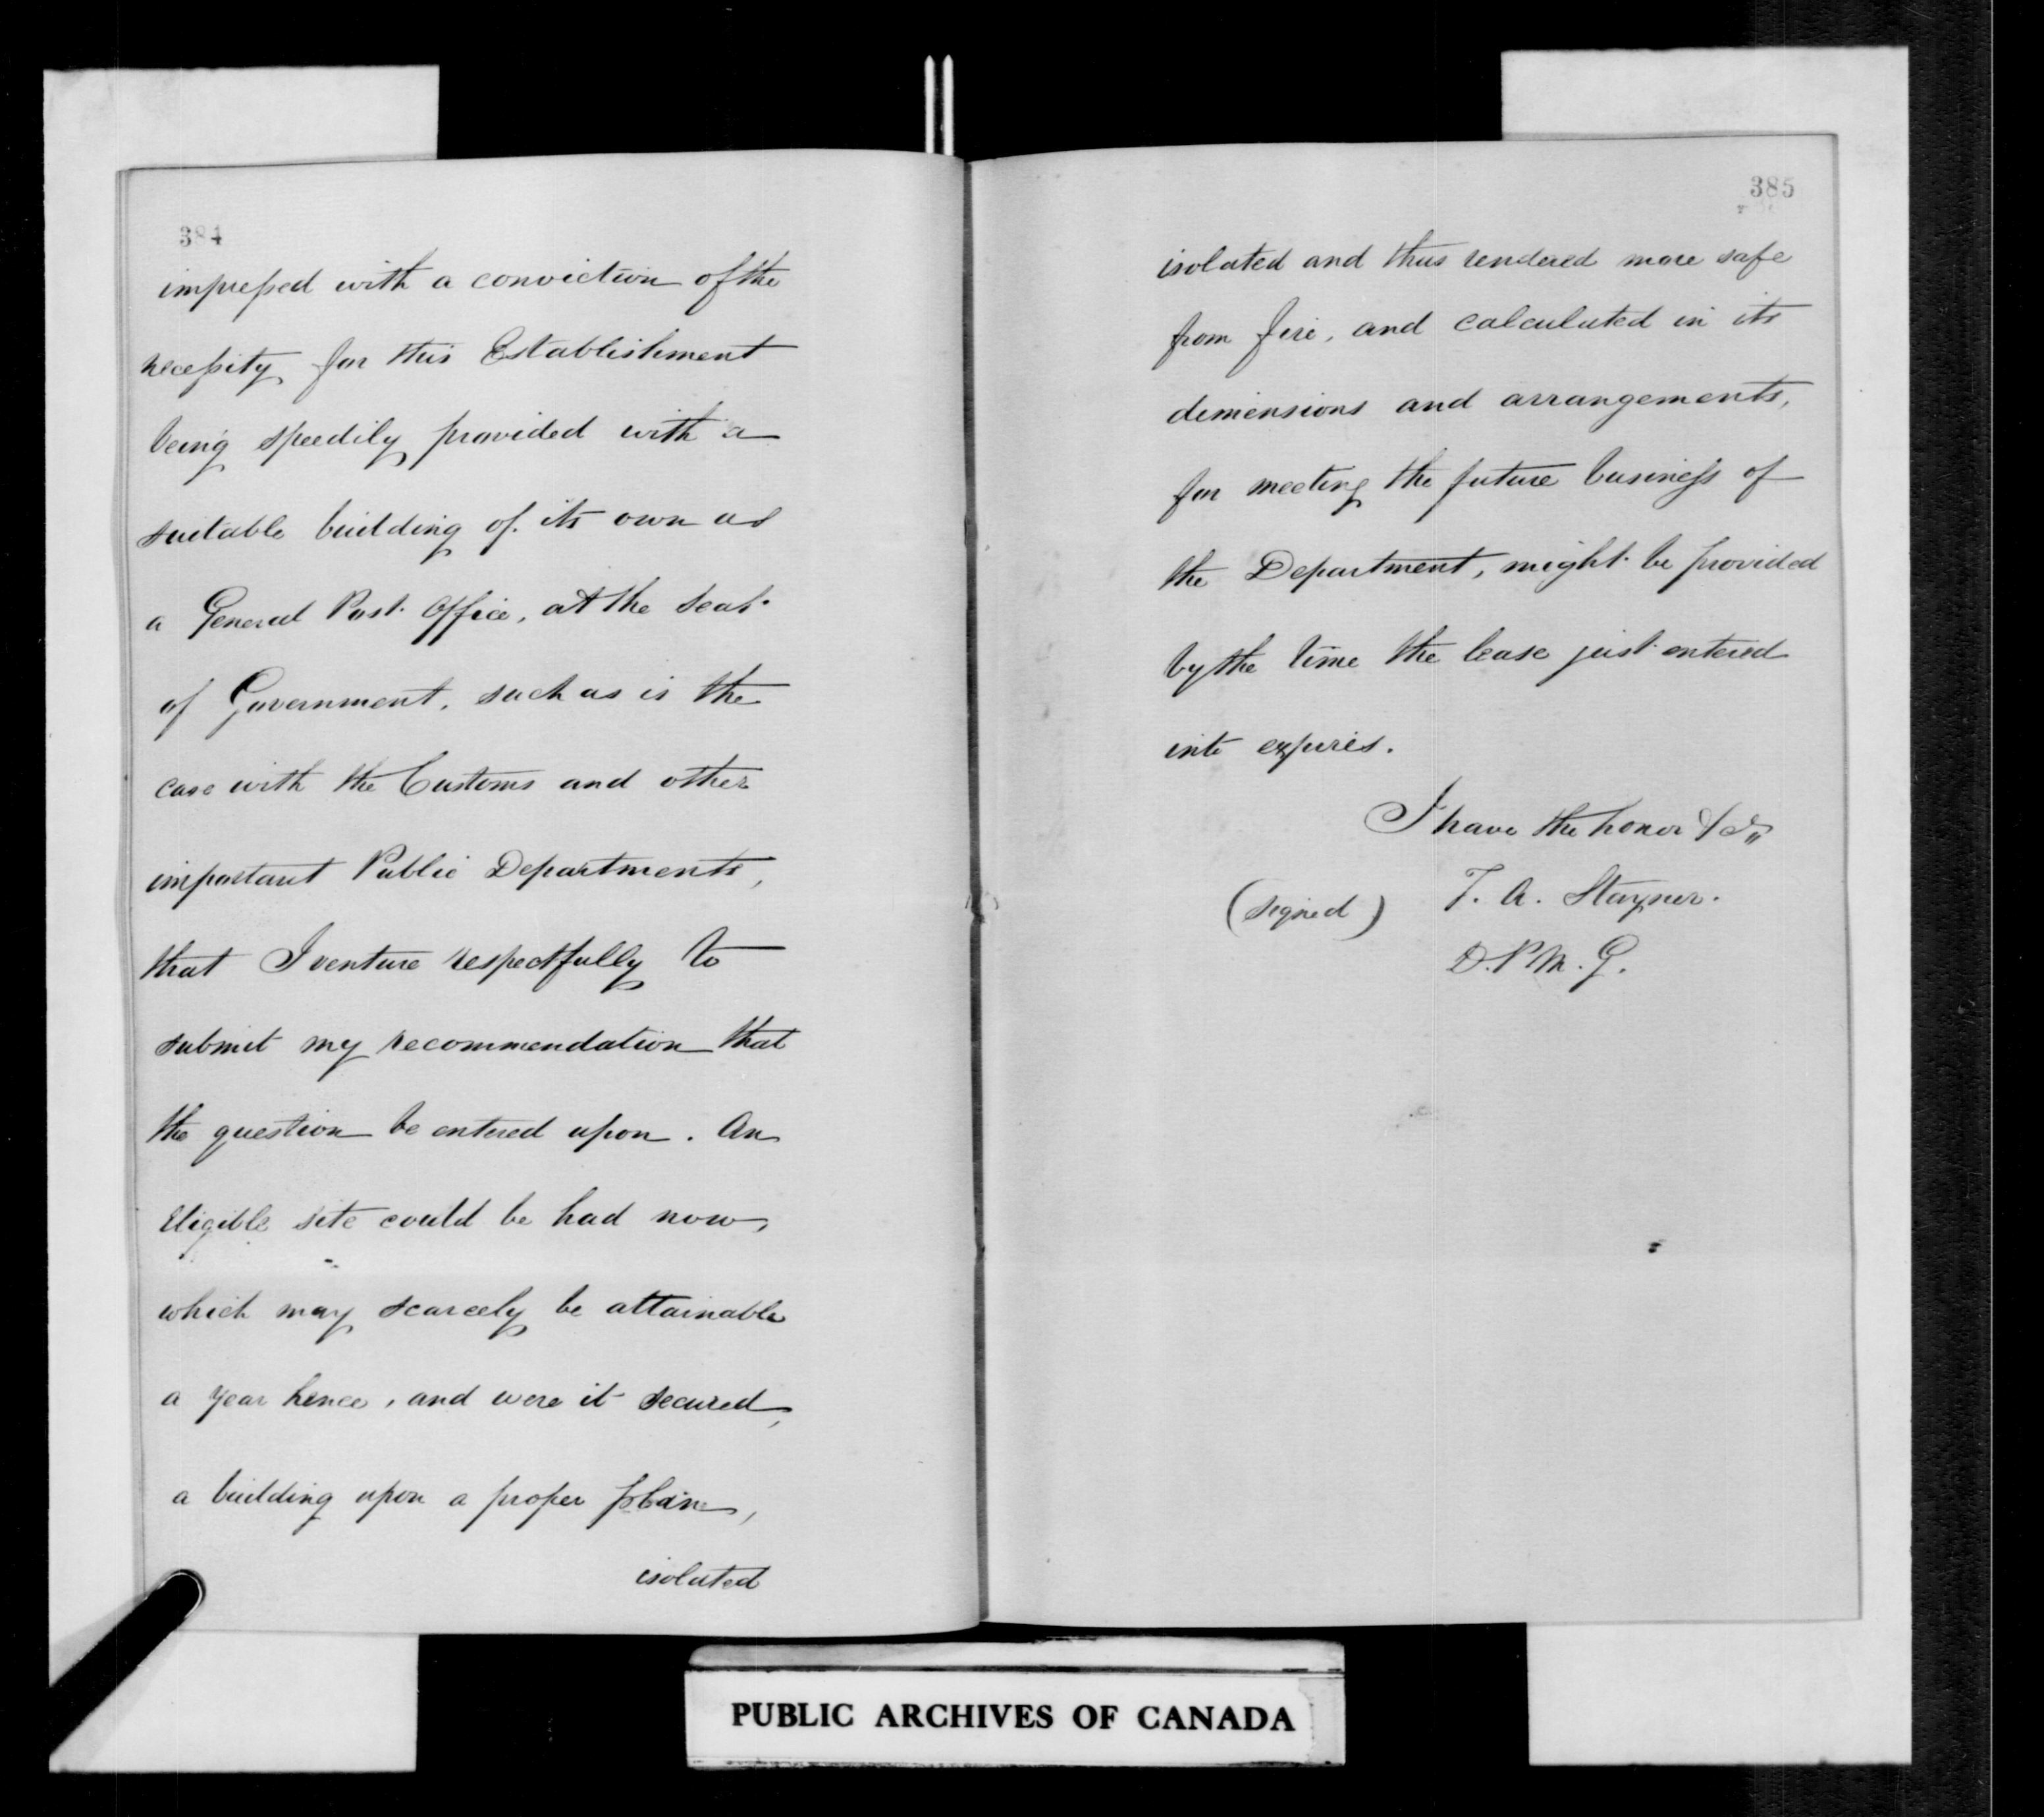 384
impressed with a conviction of the
necessity for this Establishment
being speedily provided with a
suitable building of its own as
a General Post Office, at the seat
of Government, such as is the
case with the Customs and other
important Public Departments,
that I venture respectfully to
submit my recommendation that
the question be entered upon. An
eligible site could be had now,
which may scarcely be attainable
a year hence, and were it secured,
a building upon a proper plan,
isolated
385
isolated and thus rendered more safe
from fire, and calculated in its
dimensions and arrangements,
for meeting the future business of
the Department, might be provided
by the time the lease just entered
into expires.
I have the honor &c,,
(signed) T. A. Stayner.
D.P.M.G.
PUBLIC ARCHIVES OF CANADA